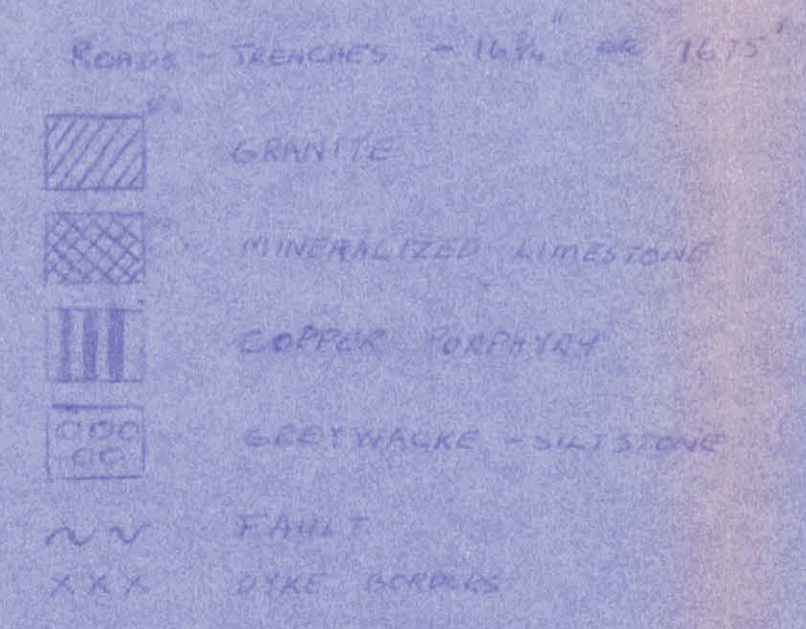 ROADS - TRENCHES - 16¾" OR 1675'
GRANITE
MINERALIZED LIMESTONE
COPPER PORPHYRY
GREYWACKE - SILTSTONE
FAULT
DYKE BORDERS